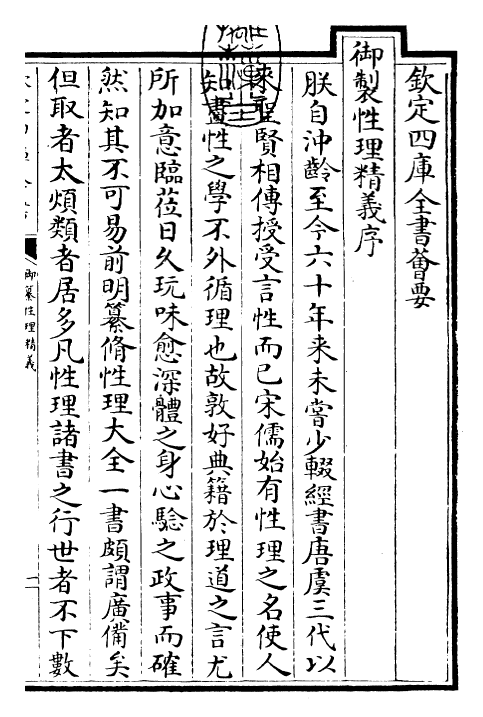 欽定四庫全書薈要
御製性理精義序
朕自沖齡至今六十年来未嘗少輟經書唐虞三代以
來聖賢相傳授受言性而已宋儒始有性理之名使人
知盡性之學不外循理也故敦好典籍於理道之言尤
所加意臨莅日久玩味愈深體之身心驗之政事而確
然知其不可易前明纂脩性理大全一書頗謂廣備矣
但取者太煩類者居多凡性理諸書之行世者不下數
御纂性理精義
一